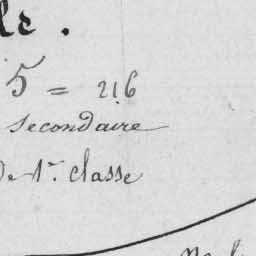 5 = 216
secondaire
de 1re classe